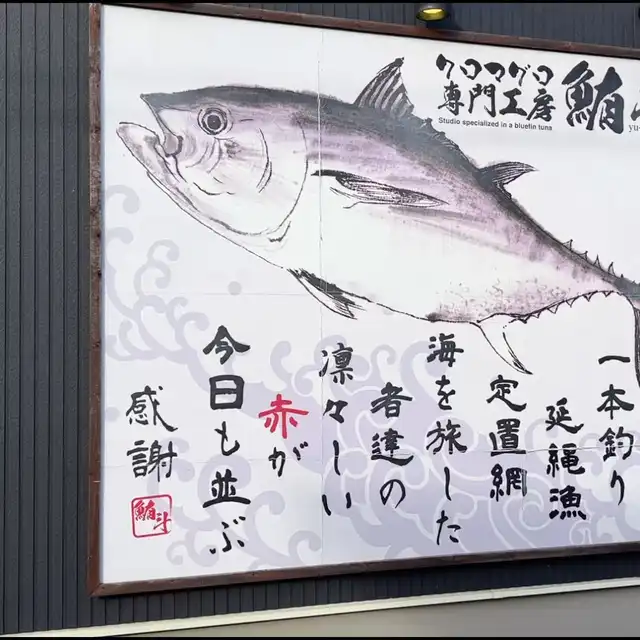 クロマグロ
専門工房
鮪
Studio specialized in a bluefin tuna
yu-
一本釣り
延縄漁
定置網
海を旅した
者達の
凛々しい
赤が
今日も並ぶ
感謝
鮪斗